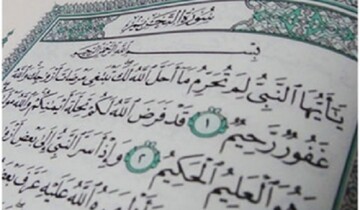 سُورَةُ التَّحْرِيمِ
بِسْمِ اللَّهِ الرَّحْمَٰنِ الرَّحِيمِ
يَٰٓأَيُّهَا ٱلنَّبِىُّ لِمَ تُحَرِّمُ مَآ أَحَلَّ ٱللَّهُ لَكَ تَبْتَغِى مَرْضَاتَ أَزْوَٰجِكَ وَٱللَّهُ
غَفُورٌ رَّحِيمٌ ١ قَدْ فَرَضَ ٱللَّهُ لَكُمْ تَحِلَّةَ أَيْمَٰنِكُمْ وَٱللَّهُ
هُوَ ٱلْعَلِيمُ ٱلْحَكِيمُ ٢ وَإِذْ أَسَرَّ ٱلنَّبِىُّ إِلَىٰ بَعْضِ
ٱللَّهُ عَلَيْهِ عَرَّفَ